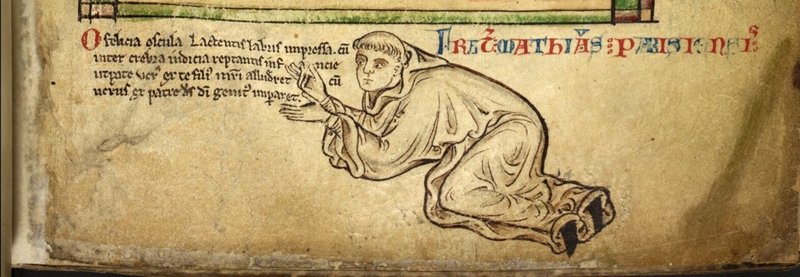 O felicia oscula Lactentis labris impressa. cū
inter crebra indicia reptantis infancie
utpote verꝰ ex te filiꝰ alluderet cū
verus ex patre genitꝰ imparet.
FRAT̄ MATHIAS PARISIENSIS